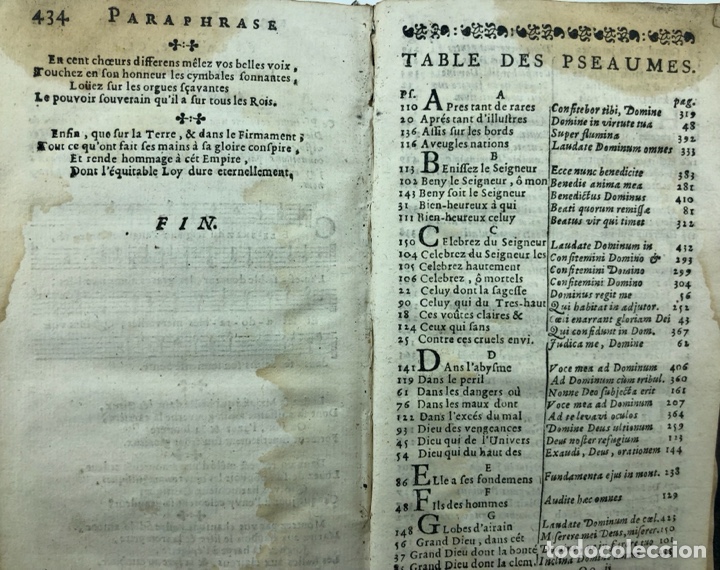 434 PARAPHRASE
En cent chœurs differens mêlez vos belles voix,
Touchez en son honneur les cymbales sonnantes,
Loüez sur les orgues sçavantes
Le pouvoir souverain qu'il a sur tous les Rois.
Enfin, que sur la Terre, & dans le Firmament;
Tout ce qu'ont fait ses mains à sa gloire conspire,
Et rende hommage à cét Empire,
Dont l'équitable Loy dure eternellement.
FIN.
TABLE DES PSEAUMES.
Ps. A A pag.
110 APres tant de rares Confitebor tibi, Domine 319
20 Aprés tant d'illustres Domine in virtute tua 48
136 Assis sur les bords Super flumina 392
116 Aveugles nations Laudate Dominum omnes 333
B
113 BEnissez le Seigneur Ecce nunc benedicite 383
102 Beny le Seigneur, ô mon Benedic anima mea 281
143 Beny soit le Seigneur Benedictus Dominus 410
31 Bien-heureux à qui Beati quorum remissæ 81
111 Bien-heureux celuy Beatus vir qui timet 322
C
150 CElebrez du Seigneur Laudate Dominum in 432
104 Celebrez du Seigneur les Confitemini Domino & 293
105 Celebrez hautement Confitemini Domino 299
106 Celebrez, ô mortels Confitemini Domino 304
22 Celuy dont la sagesse Dominus regit me 56
90 Celuy qui du Tres-haut Qui habitat in adjutor. 252
18 Ces voûtes claires & Cœli enarrant gloriam Dei 43
124 Ceux qui sans Qui confidunt in Dom. 367
25 Contre ces cruels envi. Judica me, Domine 62
D
141 DAns l'abysme Voce mea ad Dominum 406
119 Dans le peril Ad Dominum cùm tribul. 360
61 Dans les dangers où Nonne Deo subjecta erit 161
76 Dans les maux dont Voce mea ad Dominum 207
122 Dans l'excés du mal Ad te levavi oculos 364
93 Dieu des vengeances Domine Deus ultionum 259
45 Dieu qui de l'Univers Deus noster refugium 113
54 Dieu qui du haut des Exaudi, Deus, orationem 144
E
86 ELle a ses fondemens Fundamenta ejus in mont. 238
F
48 FIls des hommes Audite hæc omnes 129
G
148 GLobes d'airain Laudate Dominum de cœl. 423
56 Grand Dieu, dans cét Miserere mei Deus, miserer. 150
37 Grand Dieu dont la bonté
85 Grand Dieu dont la clem. Inclina Domine
todocoleccion